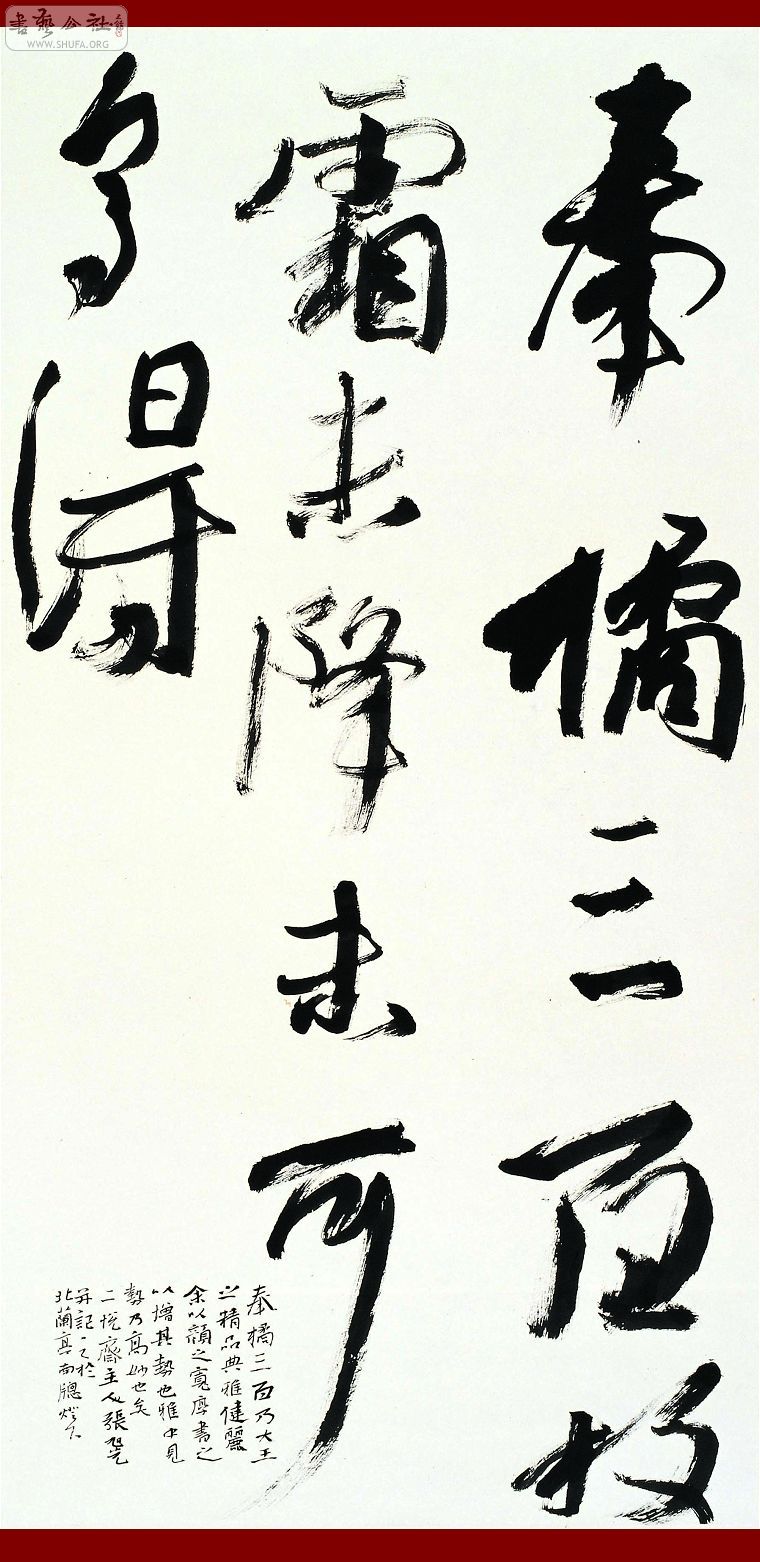 書藝公社
WWW.SHUFA.ORG
奉橘三百枚
霜未降未可
多得
奉橘三百乃大王
之精品典雅健麗
余以顔之寬厚書之
以增其勢也雅中見
勢乃高妙也矣
二悦齋主人張旭光
并記之於
北蘭亭南牕燈下